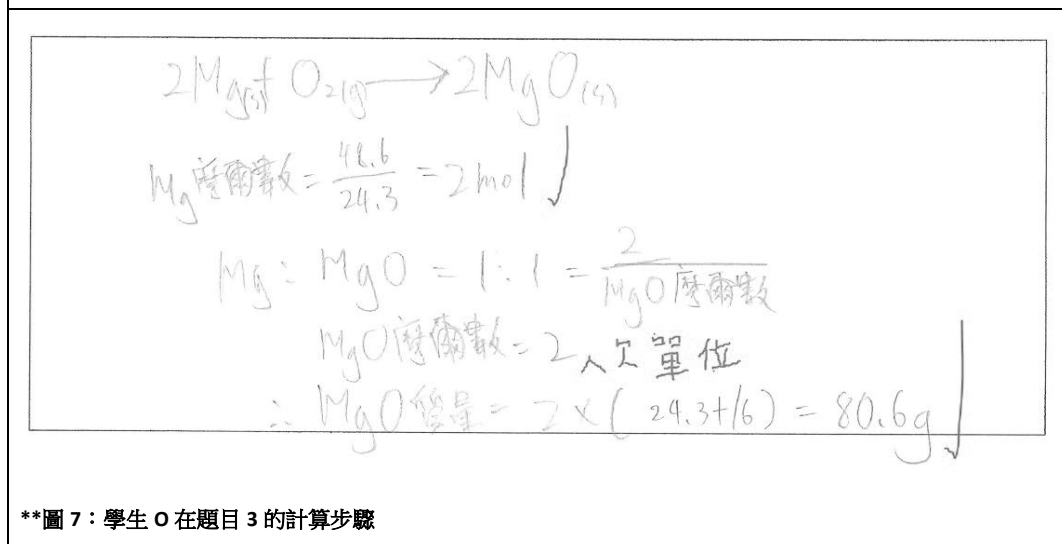 2Mg(s)+ O2(g)⟶2MgO(s)
Mg摩爾數=48.6/24.3=2mol √
Mg:MgO=1:1=2/MgO摩爾數
MgO摩爾數=2 ∧欠單位
∴MgO質量=2×(24.3+16)=80.6g √
**圖 7：學生 O 在題目 3 的計算步驟